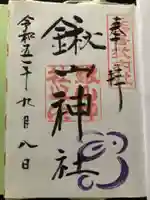 奉拝
鍬山神社
令和五年九月八日